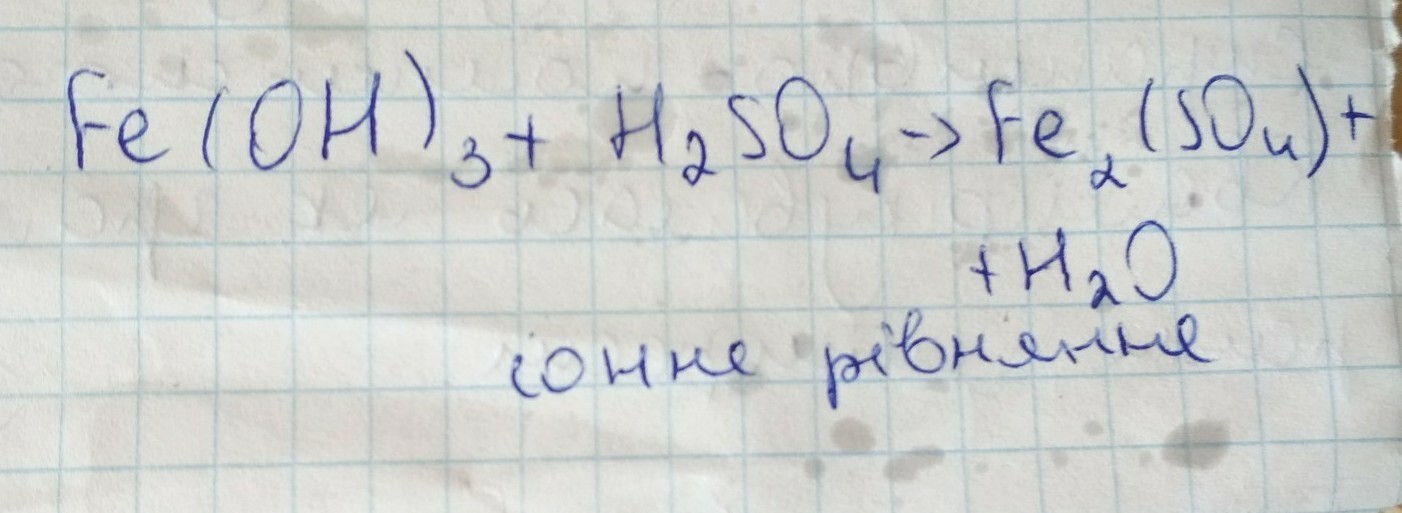 Fe(OH)₃ + H₂SO₄ → Fe₂(SO₄) +
+ H₂O
іонне рівняння